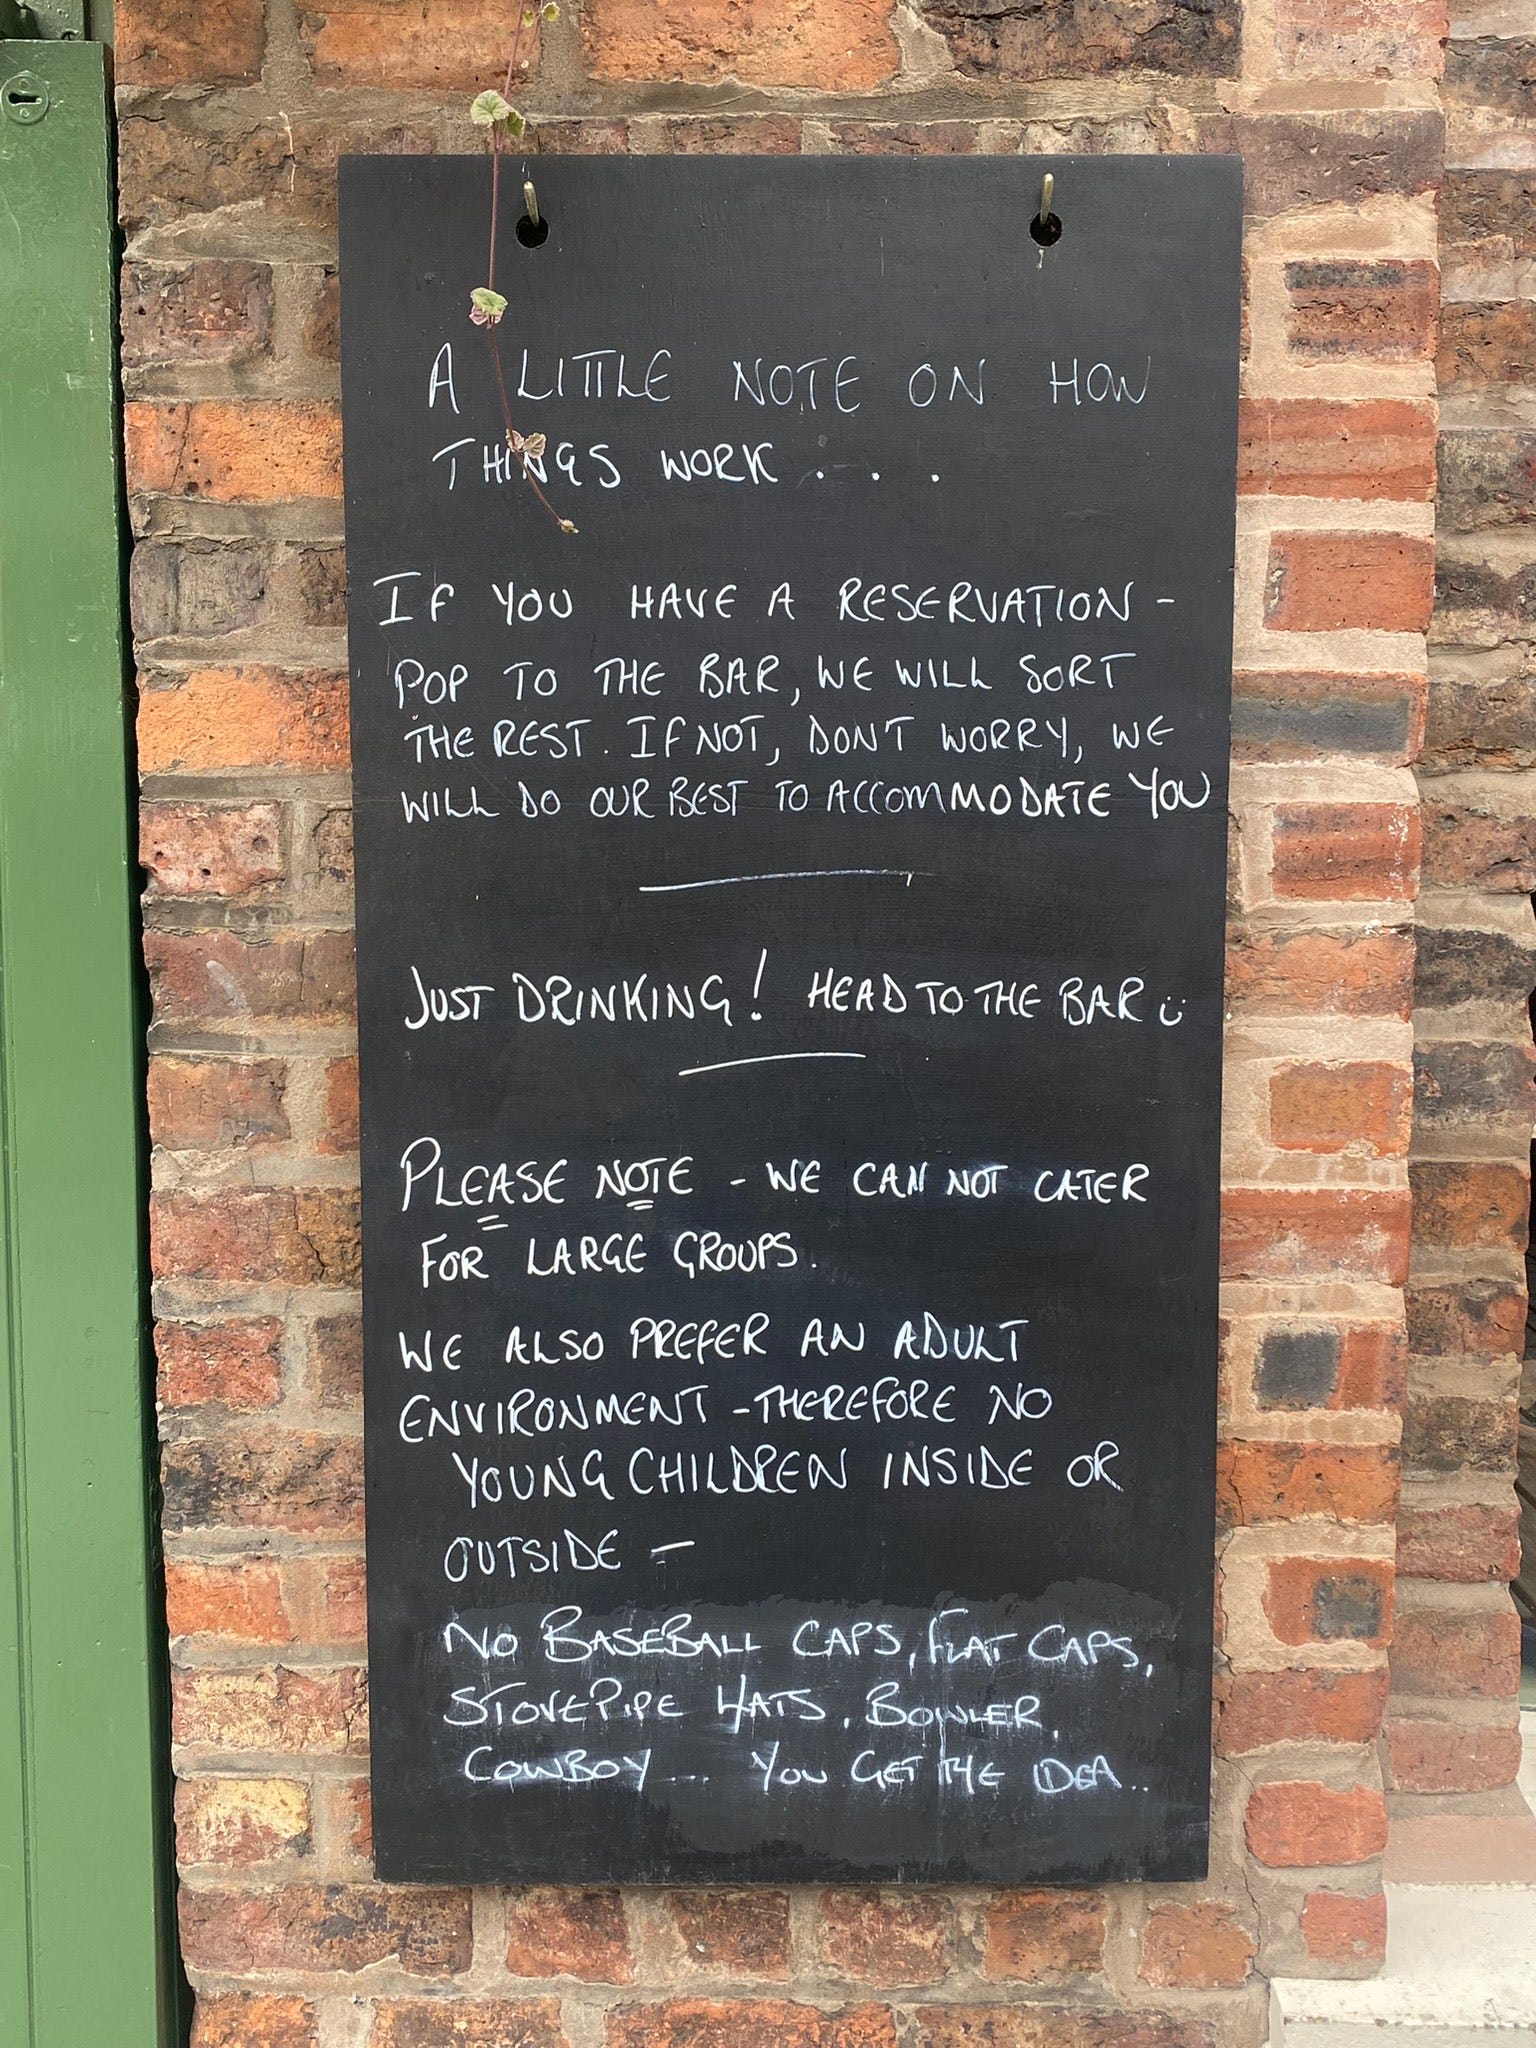 A LITTLE NOTE ON HOW
THINGS WORK . . .
IF YOU HAVE A RESERVATION -
POP TO THE BAR, WE WILL SORT
THE REST. IF NOT, DON'T WORRY, WE
WILL DO OUR BEST TO ACCOMMODATE YOU
JUST DRINKING! HEAD TO THE BAR ü
PLEASE NOTE - WE CAN NOT CATER
FOR LARGE GROUPS.
WE ALSO PREFER AN ADULT
ENVIRONMENT - THEREFORE NO
YOUNG CHILDREN INSIDE OR
OUTSIDE -
NO BASEBALL CAPS, FLAT CAPS,
STOVEPIPE HATS, BOWLER,
COWBOY... YOU GET THE IDEA..